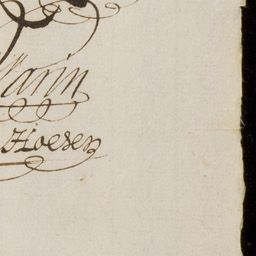 Marin
Hoesen